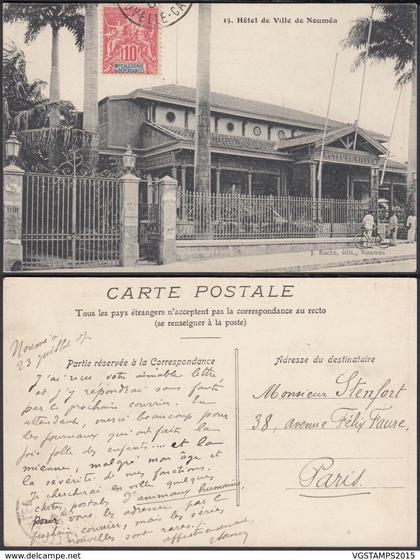 15. Hôtel de Ville de Nouméa
10
Nlle CALÉDONIE
ET DÉPENDANCES
HOTEL DE VILLE
J. Raché, édit., Nouméa
CARTE POSTALE
Tous les pays étrangers n'acceptent pas la correspondance au recto
(se renseigner à la poste)
Nouméa
23 juillet 07
Partie réservée à la Correspondance
J'ai reçu votre aimable lettre
et j'y répondrai sans faute
par le prochain courrier. En
attendant, merci beaucoup pour
les journaux qui ont fait la
joie folle des enfants... et la
mienne, malgré mon âge et
la sévérité de mes fonctions.
Je chercherai en ville quelques
cartes postales d'animaux humains,
pour vous les adresser par le
prochain courrier, mais les séries
nouvelles sont rares.
affectueusement
Adresse du destinataire
Monsieur Stenfort
38, avenue Félix Faure,
Paris
© delcampe.net
PHILATELISTS2015